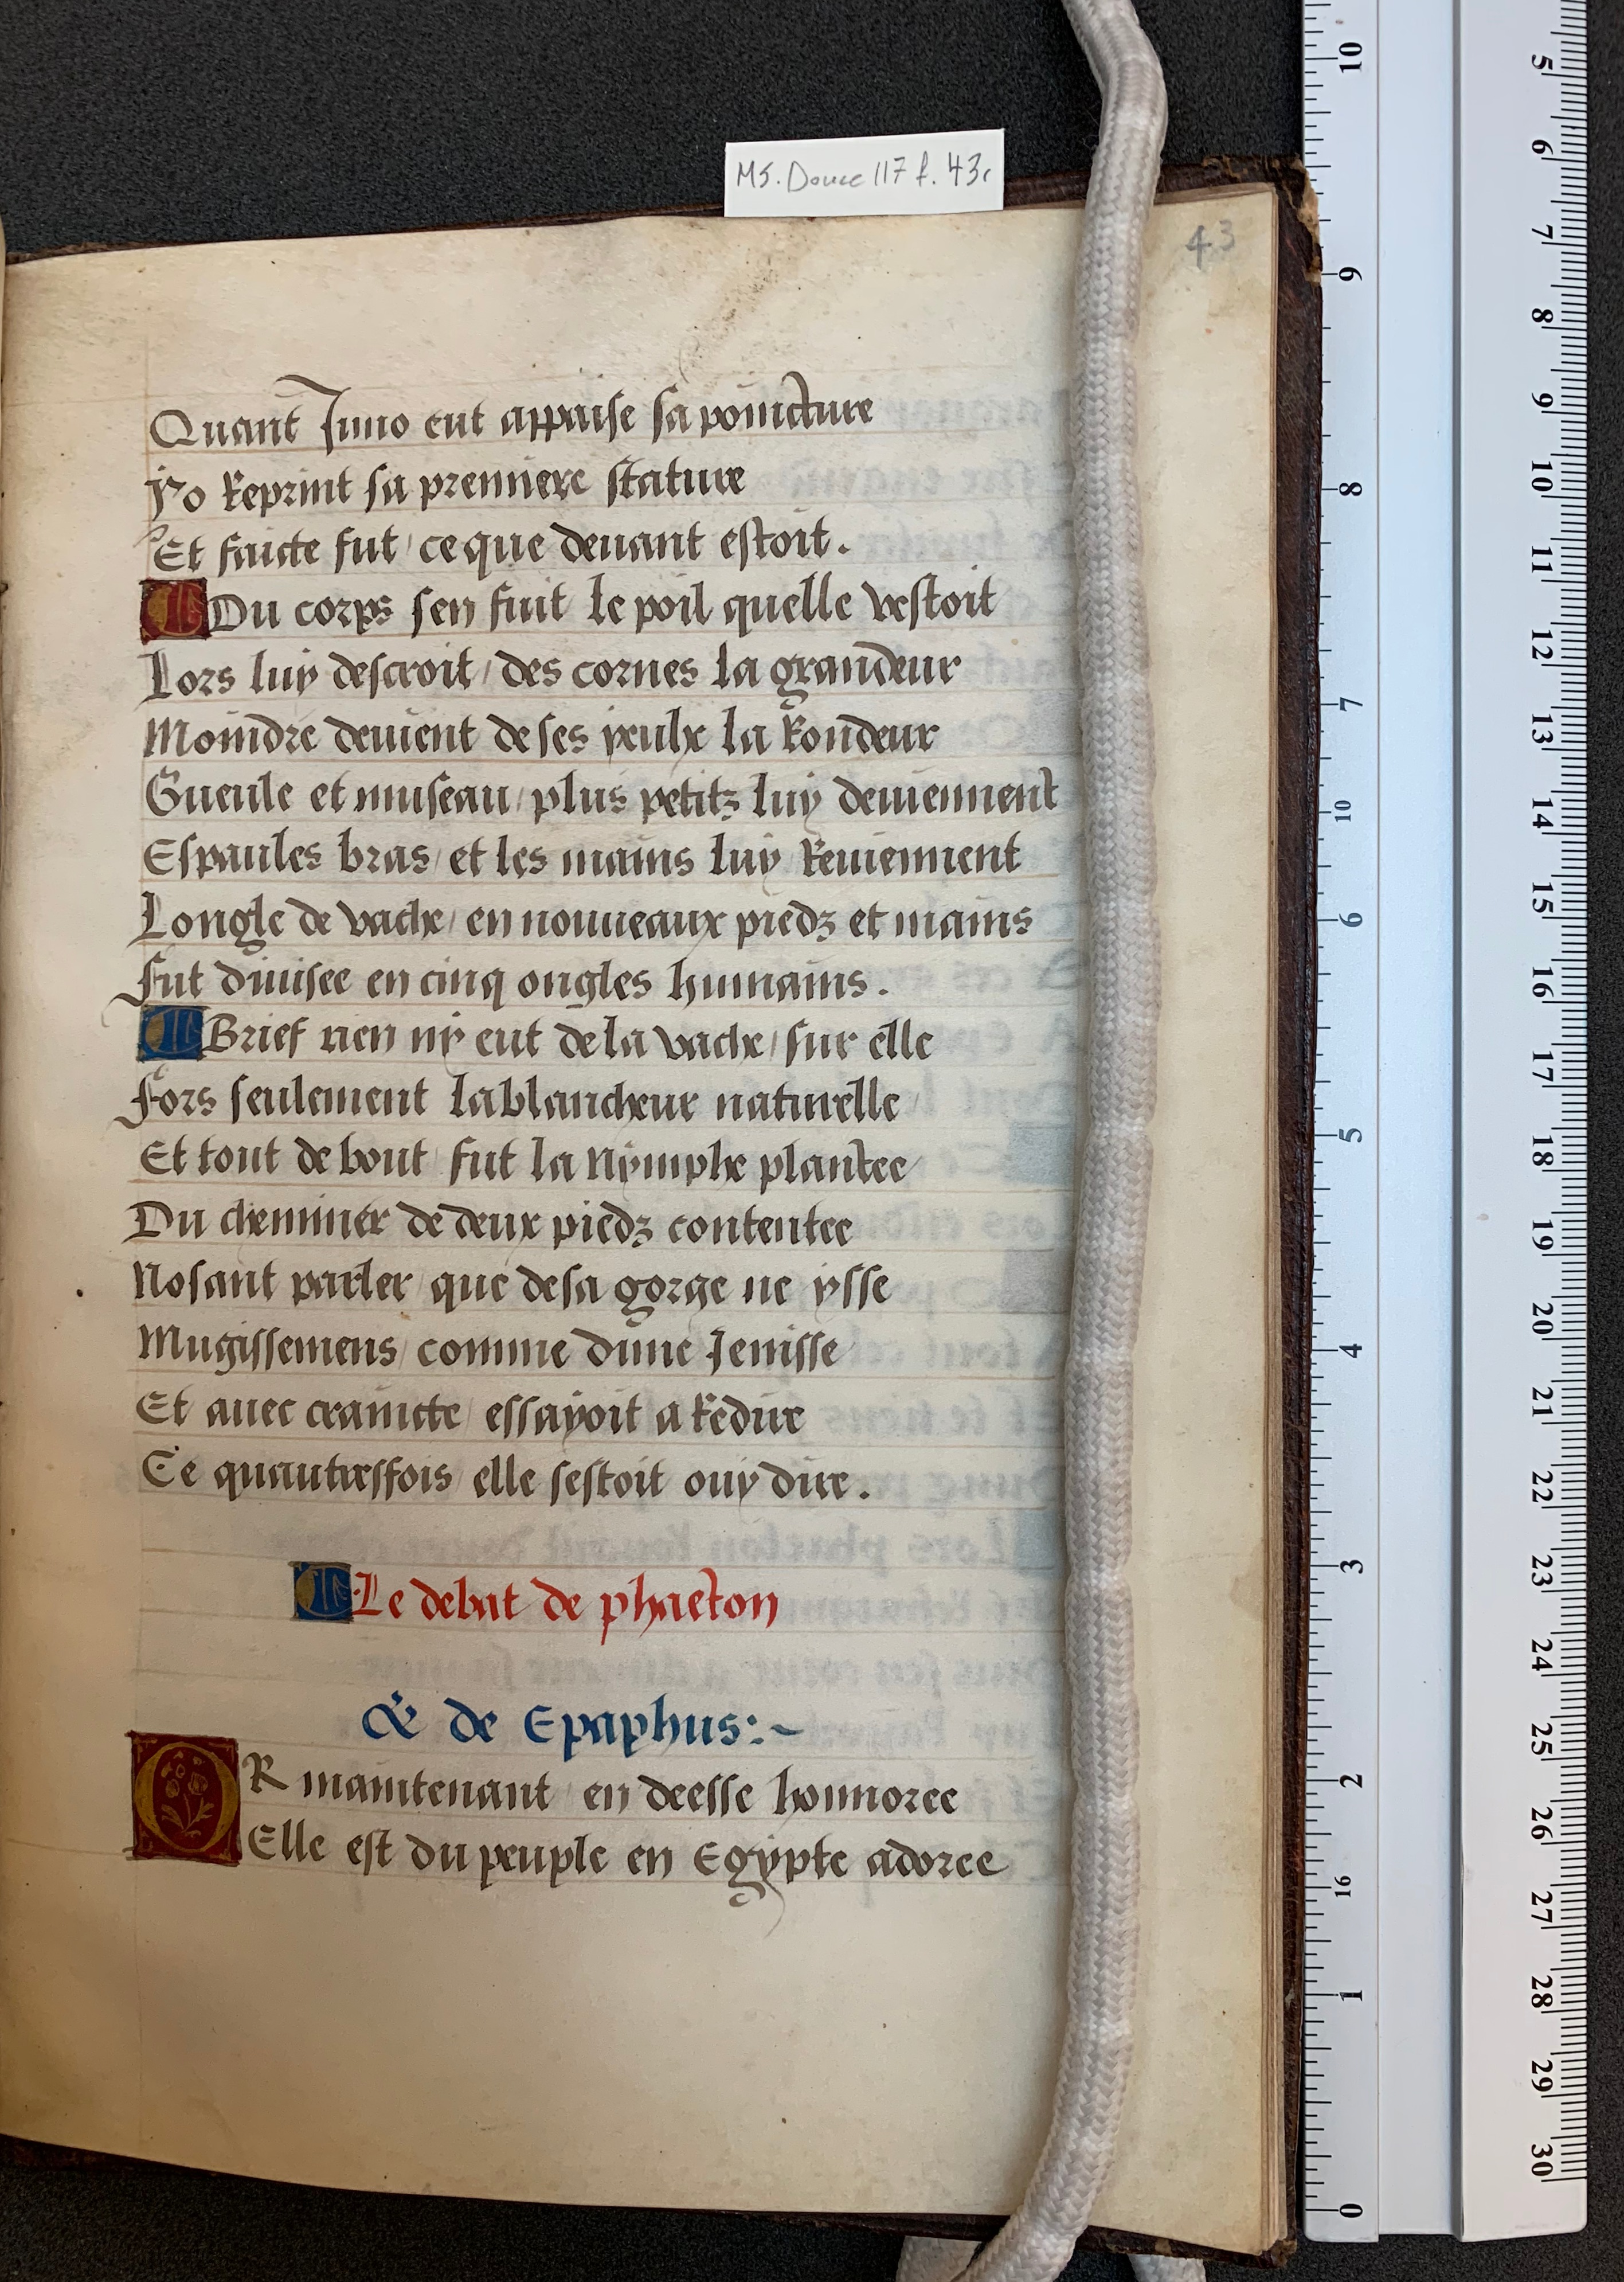 MS. Douce 117 f. 43r
43
Quant Juno eut appaise sa poincture
Yo Reprint sa premiere stature
Et faicte fut / ce que deuant estoit.
Du corps sen fuit le poil quelle vestoit
Lors luy descroit / des cornes la grandeur
Moindre deuient de ses yeulx la Rondeur
Gueule et museau / plus petitz luy deuiennent
Espaules bras / et les mains luy Reuiennent
Longle de vache / en nouueaux piedz et mains
Fut diuisee en cinq ongles humains.
Brief rien ny eut de la vache / sur elle
Fors seulement la blancheur naturelle
Et tout de bout / fut la Nymphe plantee
Du cheminer de deux piedz contentee
Nosant parler / que de sa gorge ne ysse
Mugissemens / comme dune Jenisse
Et auec craincte / essayoit a Redire
Ce quautresfois / elle sestoit ouy dire.
Le debat de phaeton
& de Epaphus:~
OR maintenant / en deesse honnoree
Elle est du peuple en Egypte adoree
10
9
8
7
10
6
5
4
3
2
16
1
0
5
6
7
8
9
10
11
12
13
14
15
16
17
18
19
20
21
22
23
24
25
26
27
28
29
30